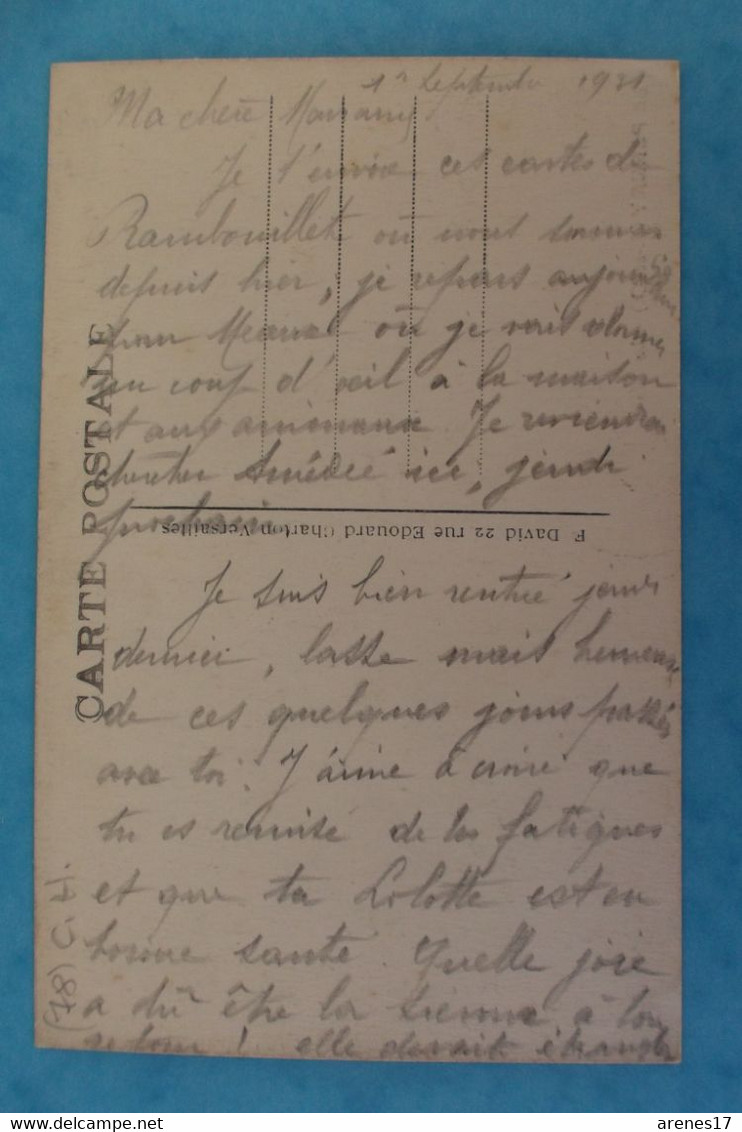 1er Septembre 1931
Ma chère
Je t'envoie ces cartes de
Rambouillet où nous sommes
depuis hier, je repars aujourd'hui
pour Meaux où je vais donner
un coup d'œil à la maison
et aux animaux Je reviendrai
ici, jeudi
prochain.
Je suis bien rentré jeudi
dernier, lasse mais heureuse
de ces quelques jours passés
avec toi. J'aime à croire que
tu es remise de tes fatigues
et que ta Lolotte est en
bonne santé. Quelle joie
a dû être la sienne à ton
retour ! elle devait
CARTE POSTALE
F. David 22 rue Edouard Charton Versailles
(78) C.H.
arenes17